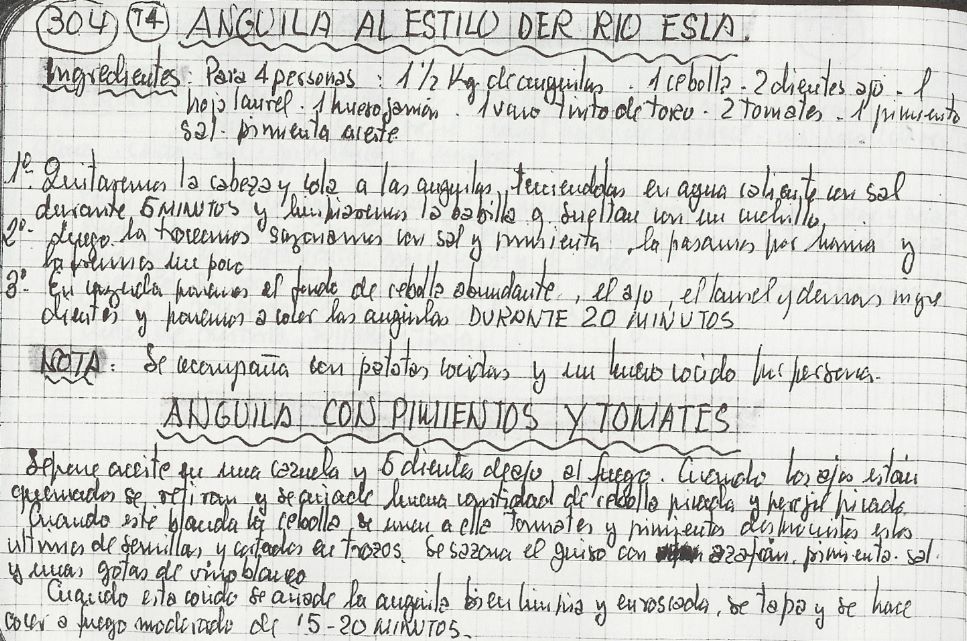 304 T4 ANGUILA AL ESTILO DER RIO ESLA.
Ingredientes: Para 4 personas: 1 1/2 Kg. de anguilas. 1 cebolla. 2 dientes ajo. 1
hoja laurel. 1 hueso jamón. 1 vaso tinto de toro. 2 tomates. 1 pimiento
sal. pimienta aceite
1º- Quitaremos la cabeza y cola a las anguilas, en agua caliente con sal
durante 5 MINUTOS y limpiaremos la babilla q. sueltan con un cuchillo.
2º- Luego la troceamos sazonamos con sal y pimienta, la pasamos por harina y
la freimos un poco
3º- En cazuela ponemos el fondo de cebolla abundante, el ajo, el laurel y demas ingre
dientes y ponemos a cocer las anguilas DURANTE 20 MINUTOS
NOTA: Se acompaña con patatas cocidas y un huevo cocido por persona.
ANGUILA CON PIMIENTOS Y TOMATES
Se pone aceite en una cazuela y 5 dientes de ajo al fuego. Cuando los ajos están
quemados se retiran y se añade buena cantidad de cebolla picada y perejil picado.
Cuando esté blanda la cebolla se unen a ella tomates y pimientos desprovistos estos
ultimos de semillas y cortados en trozos. Se sazona el guiso con azafrán. pimienta. sal.
y unas gotas de vino blanco
Cuando esta cocido se añade la anguila bien limpia y enroscada, se tapa y se hace
cocer a fuego moderado de 15-20 MINUTOS.